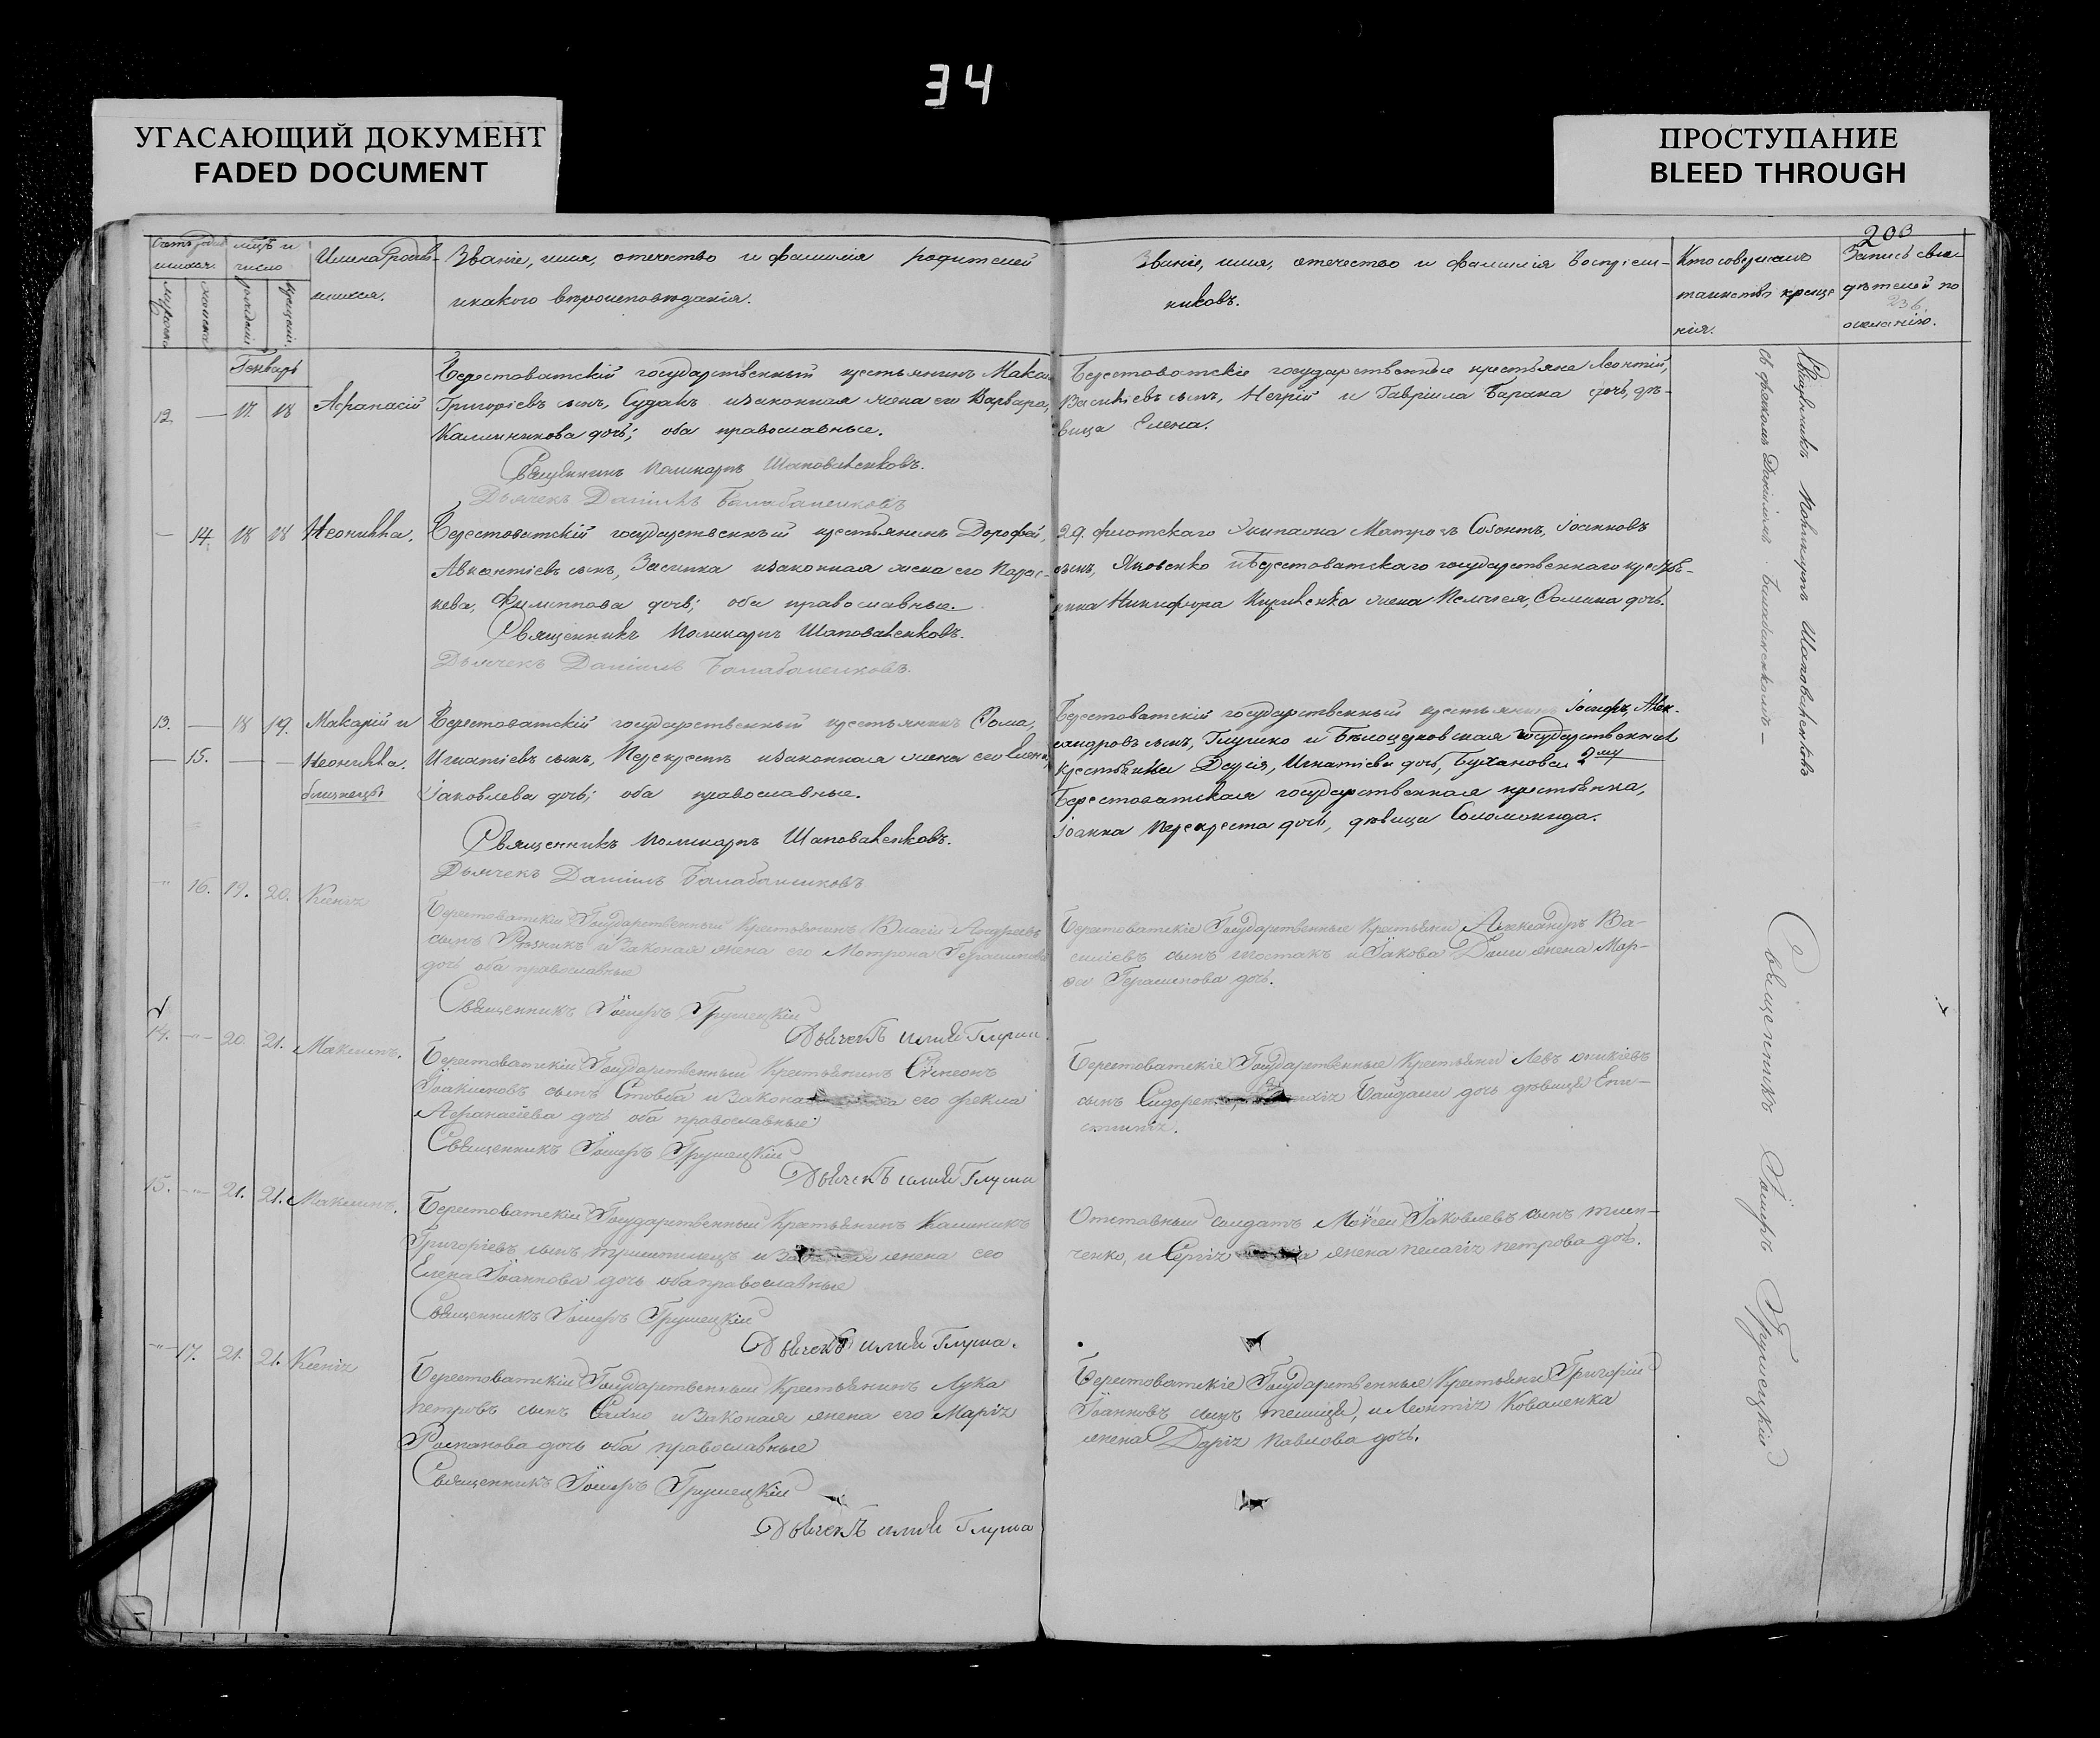 34
УГАСАЮЩИЙ ДОКУМЕНТ
FADED DOCUMENT
ПРОСТУПАНИЕ
BLEED THROUGH
203
Звание, имя, отечество и фамилія родителей
и какого вѣроисповѣданія.
Званіе, имя, отечество и фамилія воспріем-
никовъ.
Кто совершалъ
таинство креще
нія.
Запись сви-
дѣтелей по
236
желанію.
Генварь
12. — 17. 18 Афанасій
Берестоватскій государственный крестьянинъ Макси
Григоріевъ сынъ, Судакъ и законная жена его Варвара,
Калиникова дочь; оба православные.
Священникъ Поликарпъ Шаповаленковъ.
Дьячекъ Даніилъ Балабаненковъ
Берестоватскіе государственные крестьяне Леонтій,
Васильевъ сынъ, Негрій и Гавріила Барана дочь, дѣ-
вица Елена.
— 14. 18 18 Неонилла.
Берестоватскій государственный крестьянинъ Дорофей,
Авксентіевъ сынъ, Засипка и законная жена его Парас-
кева, Филиппова дочь; оба православные.
Священникъ Поликарпъ Шаповаленковъ.
Дьячекъ Даніилъ Балабаненковъ.
29. флотскаго Экипажа Матросъ Созонтъ, Іоанновъ
сынъ, Яковенко и Берестоватскаго государственнаго крестья-
нина Никифора Кириленка жена Пелагея, Фомина дочь.
13. — 18 19. Макарій и
— 15. — — Неонилла.
близнецы
Берестоватскій государственный крестьянинъ Фома,
Игнатіевъ сынъ, Перекрестъ и законная жена его Елена,
Іаковлева дочь; оба православные.
Священникъ Поликарпъ Шаповаленковъ.
Дьячекъ Даніилъ Балабаненковъ
Берестоватскій государственный крестьянинъ Іосифъ, Алек-
сандровъ сынъ, Глушко и Бѣлоцерковская государственная
крестьянка Дарія, Игнатіева дочь, Буханова 2му
Берестоватская государственная крестьянка,
Іоанна Перекреста дочь, дѣвица Соломонида.
" 16. 19. 20. Ксенія
Берестоватскій Государственный Крестьянинъ Власій Андреевъ
сынъ Рѣзникъ и Законая жена его Мотрона Герасимова
дочь оба православные
Священникъ Іосифъ Грушецкій
Дьячекъ Глуша.
Берестоватскіе Государственные Крестьяни Александръ Ва-
силіевъ сынъ Шостакъ и Іакова жена Мар-
фа Герасимова дочь.
14. — 20. 21. Максимъ.
Берестоватскій Государственный Крестьянинъ Симеонъ
Іоакимовъ сынъ Стовба и Закона его Фекла
Афанасіева дочь оба православные
Священникъ Іосифъ Грушецкій
Дьячекъ Глуша
Берестоватскіе Государственные Крестьяни Левъ
сынъ дочь дѣвица Епи-
стимія.
15. — 21. 21. Максимъ.
Берестоватскій Государственный Крестьянинъ Калиникъ
Григоріевъ сынъ и жена его
Елена Іоаннова дочь оба православные
Священникъ Іосифъ Грушецкій
Дьячекъ Глуша.
Отставный солдатъ Моѵсей Іаковлевъ сынъ
ченко, и Сергія жена пелагія петрова дочь.
" 17. 21. 21. Ксенія
Берестоватскій Государственный Крестьянинъ Лука
петровъ сынъ Сахно и Законая жена его Марія
Романова дочь оба православные
Священникъ Іосифъ Грушецкій
Дьячекъ Глуша
Берестоватскіе Государственные Крестьяни Григорій
Іоанновъ сынъ и Леонтія Коваленка
жена Дарія павлова дочь.
Священникъ Поликарпъ Шаповаленковъ
съ дьячкомъ Даніиломъ Балабаненкомъ —
Священникъ Іосифъ Грушецкій